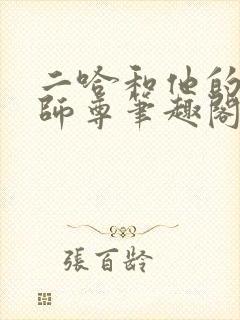 二哈和他的
師尊筆趣閣
張百齡